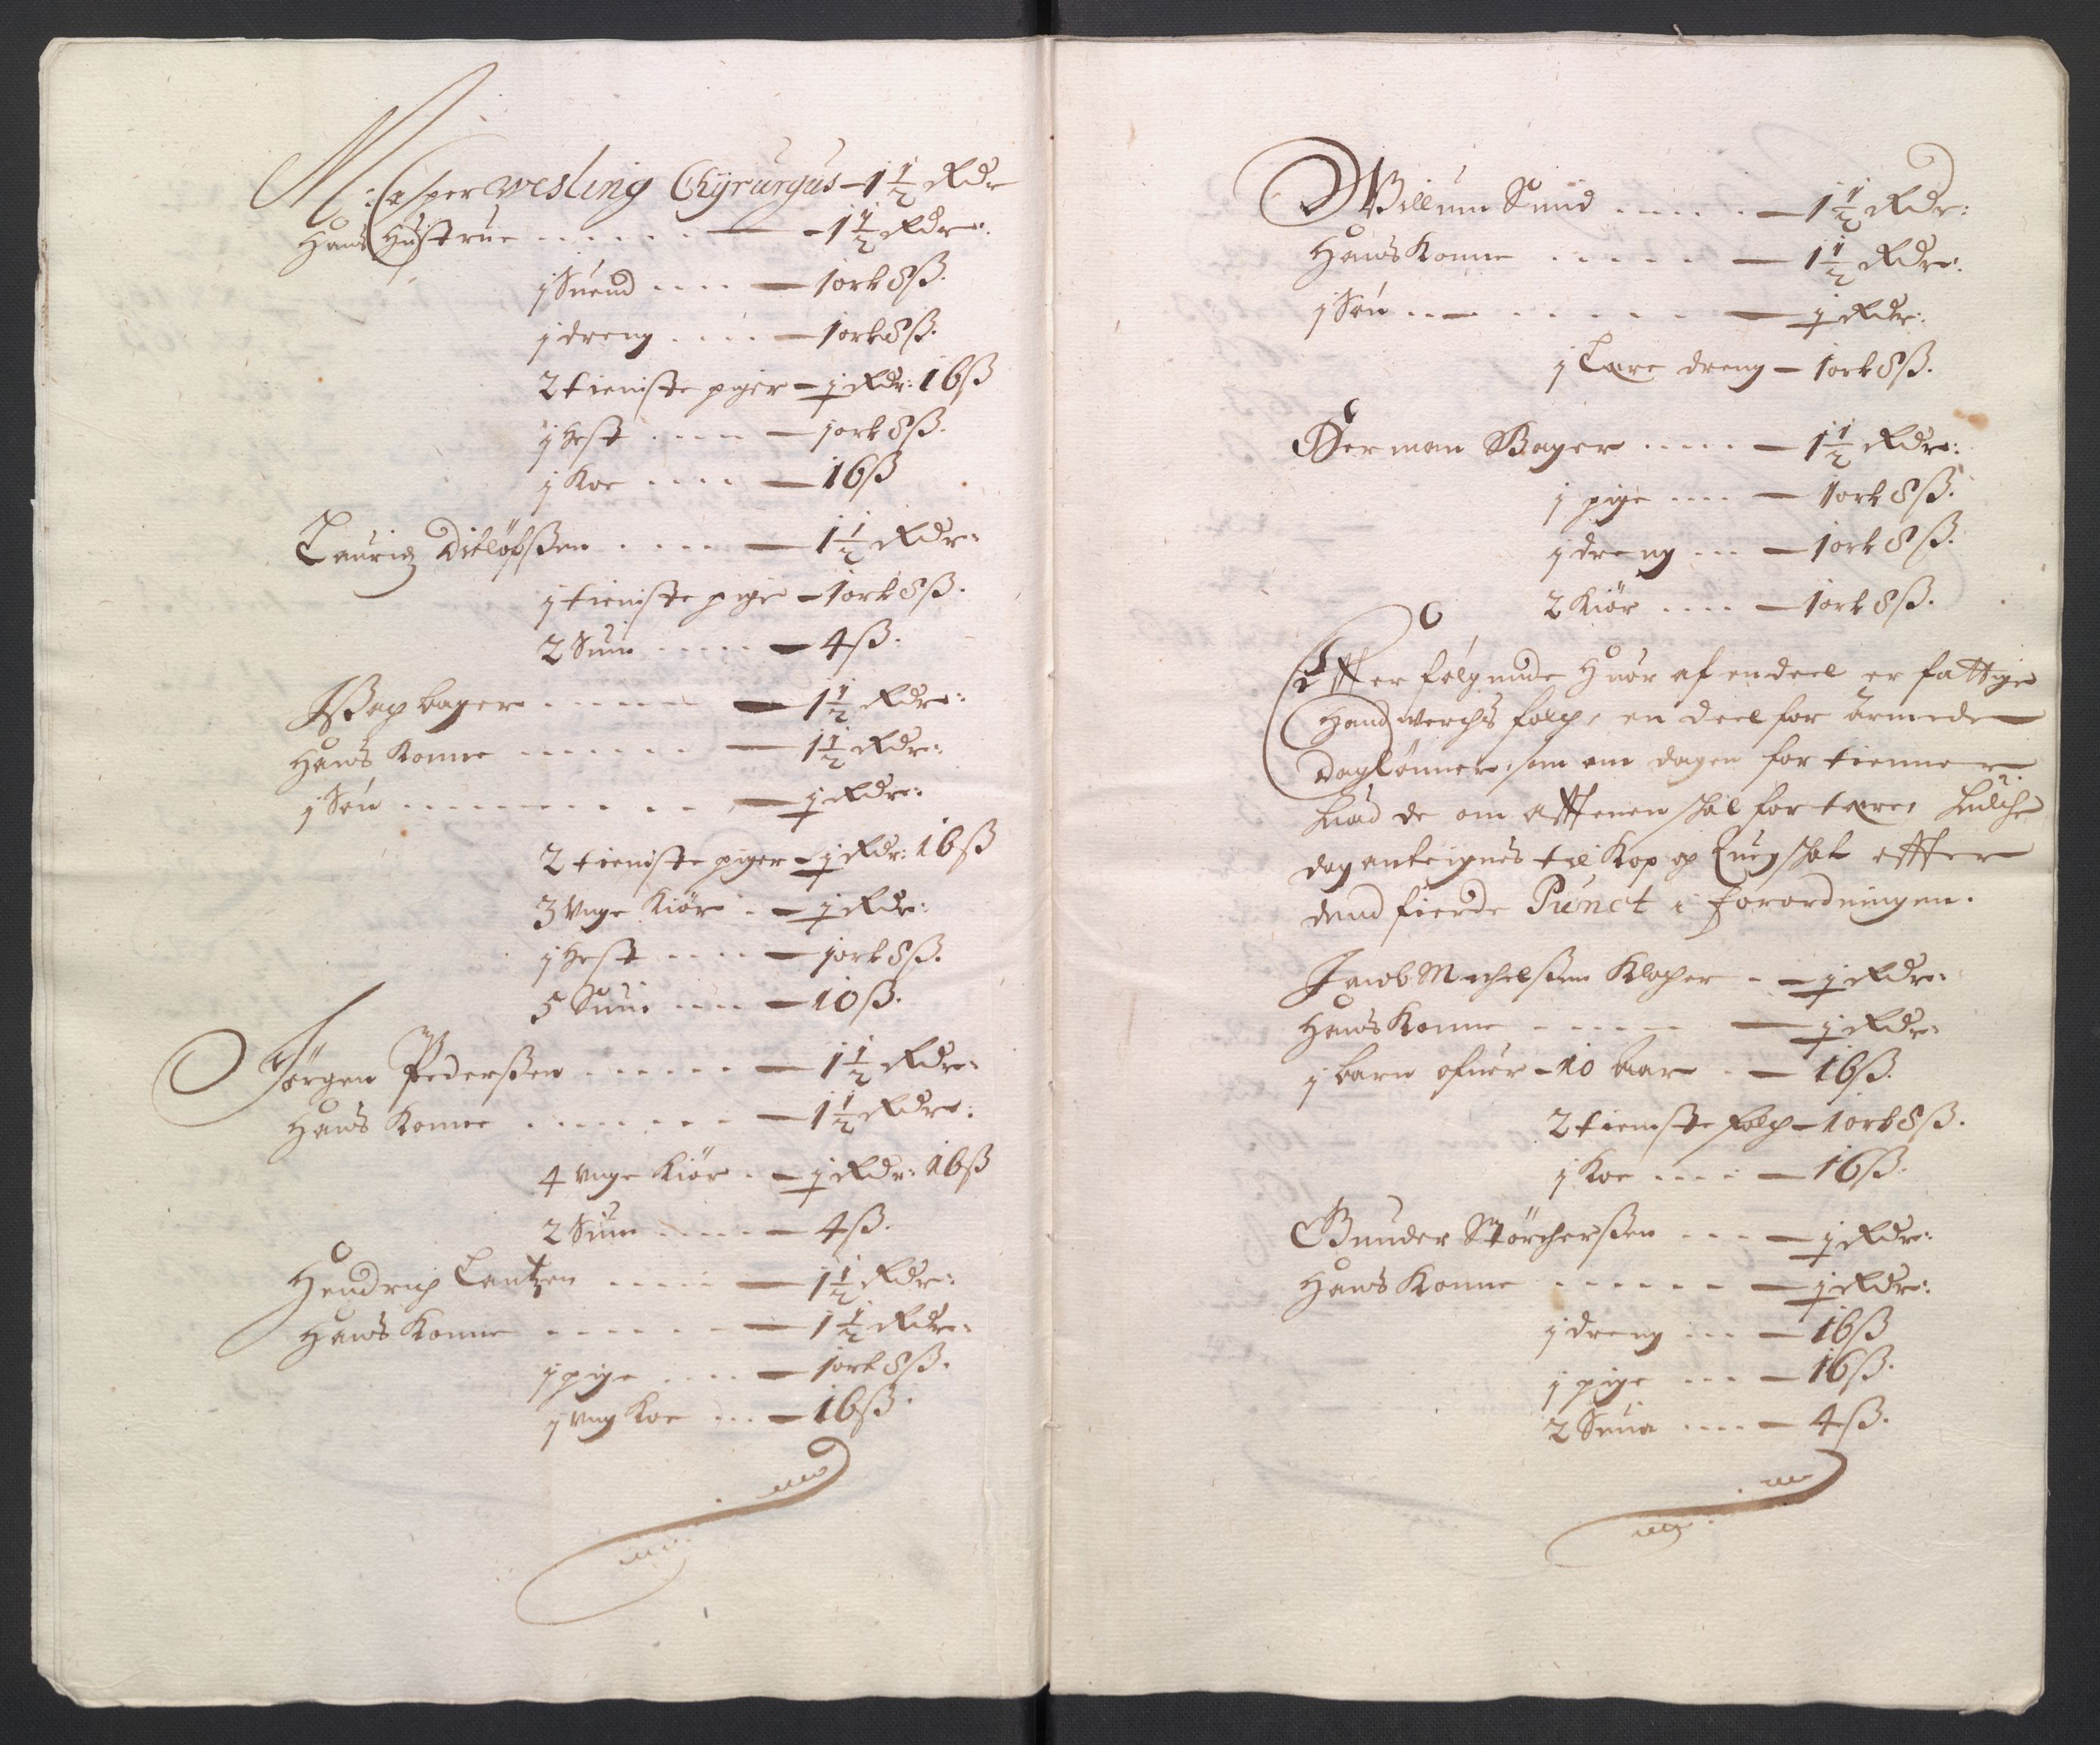 M: Casper Wesling Chyrurgus – 1 1/2 Rdr
Hans Hustrue . . . . . . – 1 1/2 Rdr:
j Suend . . . . – 1ort 8ß.
j dreng . . . . – 1ort 8ß.
2 tieniste piger – j Rdr: 16ß
j Hest . . . . – jort 8ß.
j Koe . . . . – 16ß
Lauridz Ditløfßen . . . . – 1 1/2 Rdr:
j tieniste pige – 1ort 8ß.
2 Suin . . . . . – 4ß.
bager . . . . . – 1 1/2 Rdr:
Hans Konne . . . . . . – 1 1/2 Rdr:
j Søn . . . . . . . . . – j Rdr:
2 tieniste piger – j Rdr: 16ß
3 unge Kiør . – j Rdr:
j Hest . . . . – jort 8ß.
5 Suin . . . . – 10ß.
Jørgen Pederßen . . . . . . – 1 1/2 Rdr:
Hans Konne . . . . . . . – 1 1/2 Rdr:
4 unge Kiør . – j Rdr: 16ß
2 Suin . . . . . – 4ß.
Hendrich Lantzen . . . . . – 1 1/2 Rdr:
Hans Konne . . . . . . – 1 1/2 Rdr:
j pige . . . . – 1ort 8ß.
j ung Koe . . . – 16ß.
Willum Smid . . . . . – 1 1/2 Rdr:
Hans Konne . . . . . – 1 1/2 Rdr:
j Søn . . . . . . . . – j Rdr:
j Lære dreng – 1ort 8ß.
Herman Bager . . . . . – 1 1/2 Rdr:
j pige . . . . – 1ort 8ß.
j dreng . . . – 1ort 8ß.
2 Kiør . . . . – 1ort 8ß.
Effterfølgende Huor af en deel er fattige
Handwerchs folch, en deel forarmede
Daglønner, som om dagen fortienner
huad de om afftenen skal fortære, huilche
dog anteignes til Kop og Quegskat effter
dend fierde Punct i forordningen.
Jacob Michelßen Klocher . – j Rdr:
Hans Konne . . . . . . – j Rdr:
j barn ofuer – 10 aar . – 16ß.
2 tieniste folch – 1ort 8ß.
j Koe . . . . – 16ß.
Gunder Størcherßen . . . – j Rdr:
Hans Konne . . . . . . – j Rdr:
j dreng . . . – 16ß
j pige . . . – 16ß.
2 Suin . . . . – 4ß.